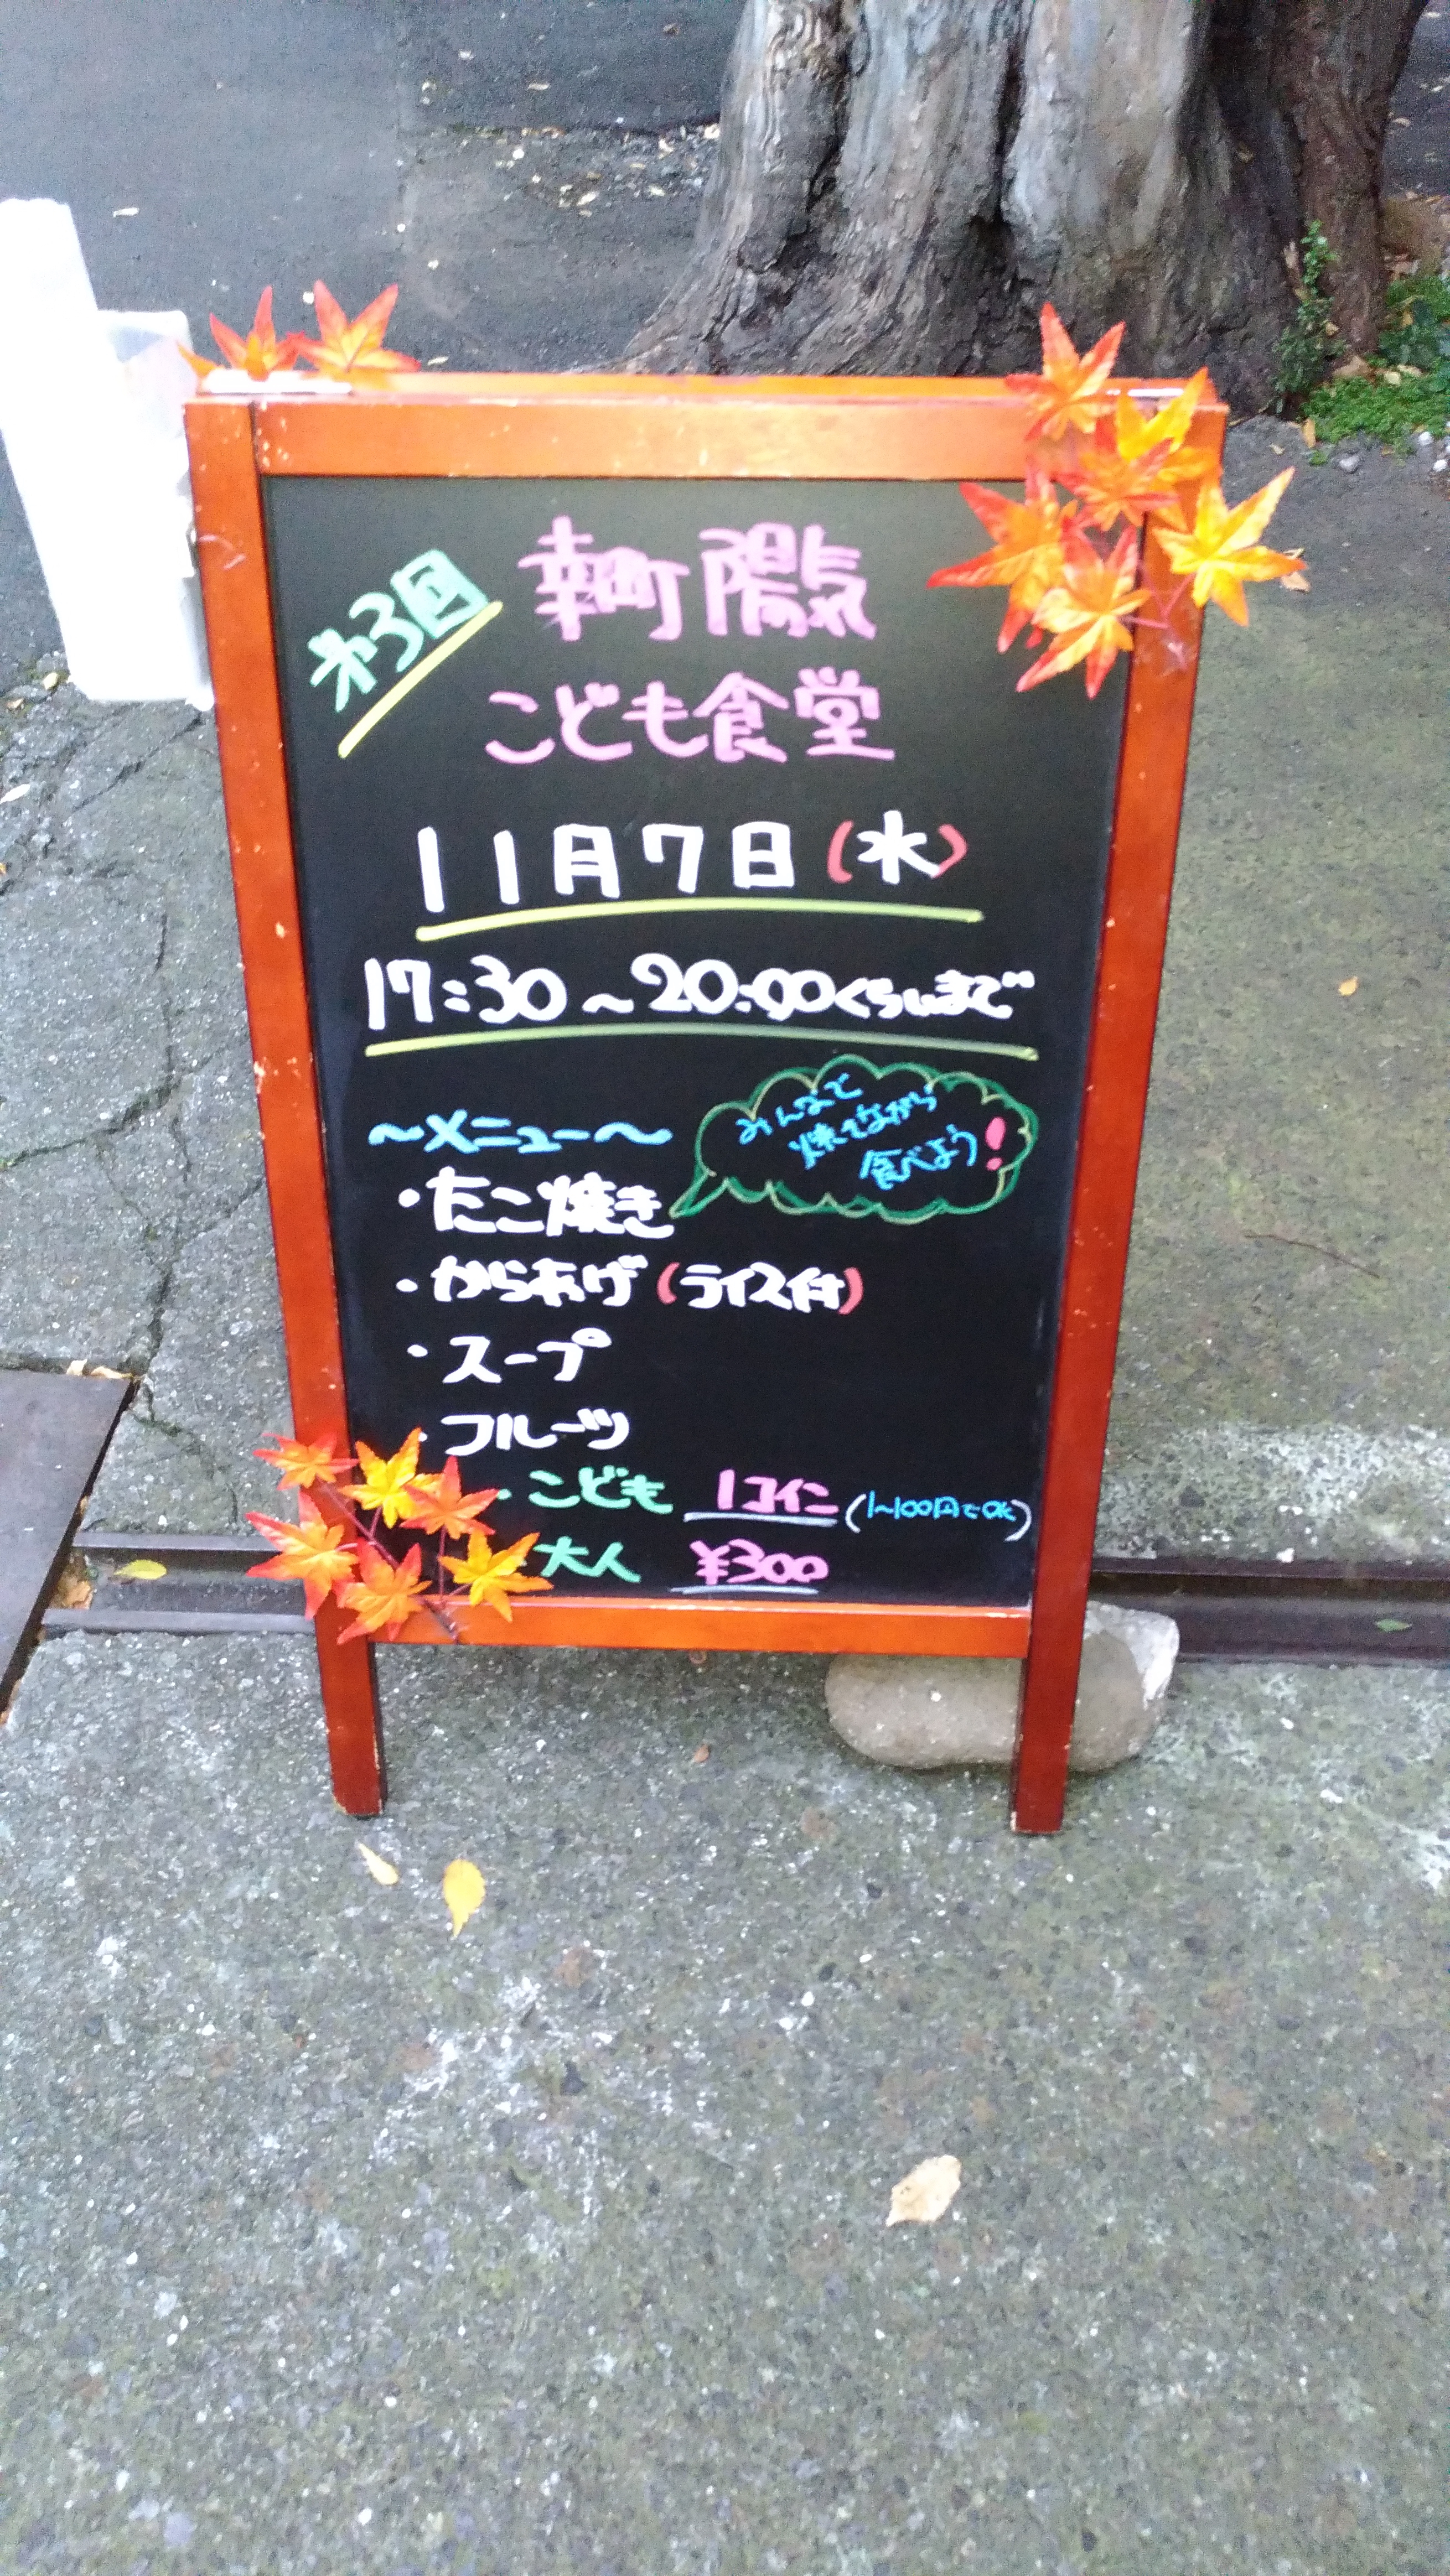 第3回
幸町陽気
こども食堂
11月7日(水)
17:30~20:00くらいまで
~メニュー~
みんなで
焼きながら
食べよう!
・たこ焼き
・からあげ(ライス付)
・スープ
・フルーツ
・こども 1コイン(1~100円でOK)
大人 ¥300